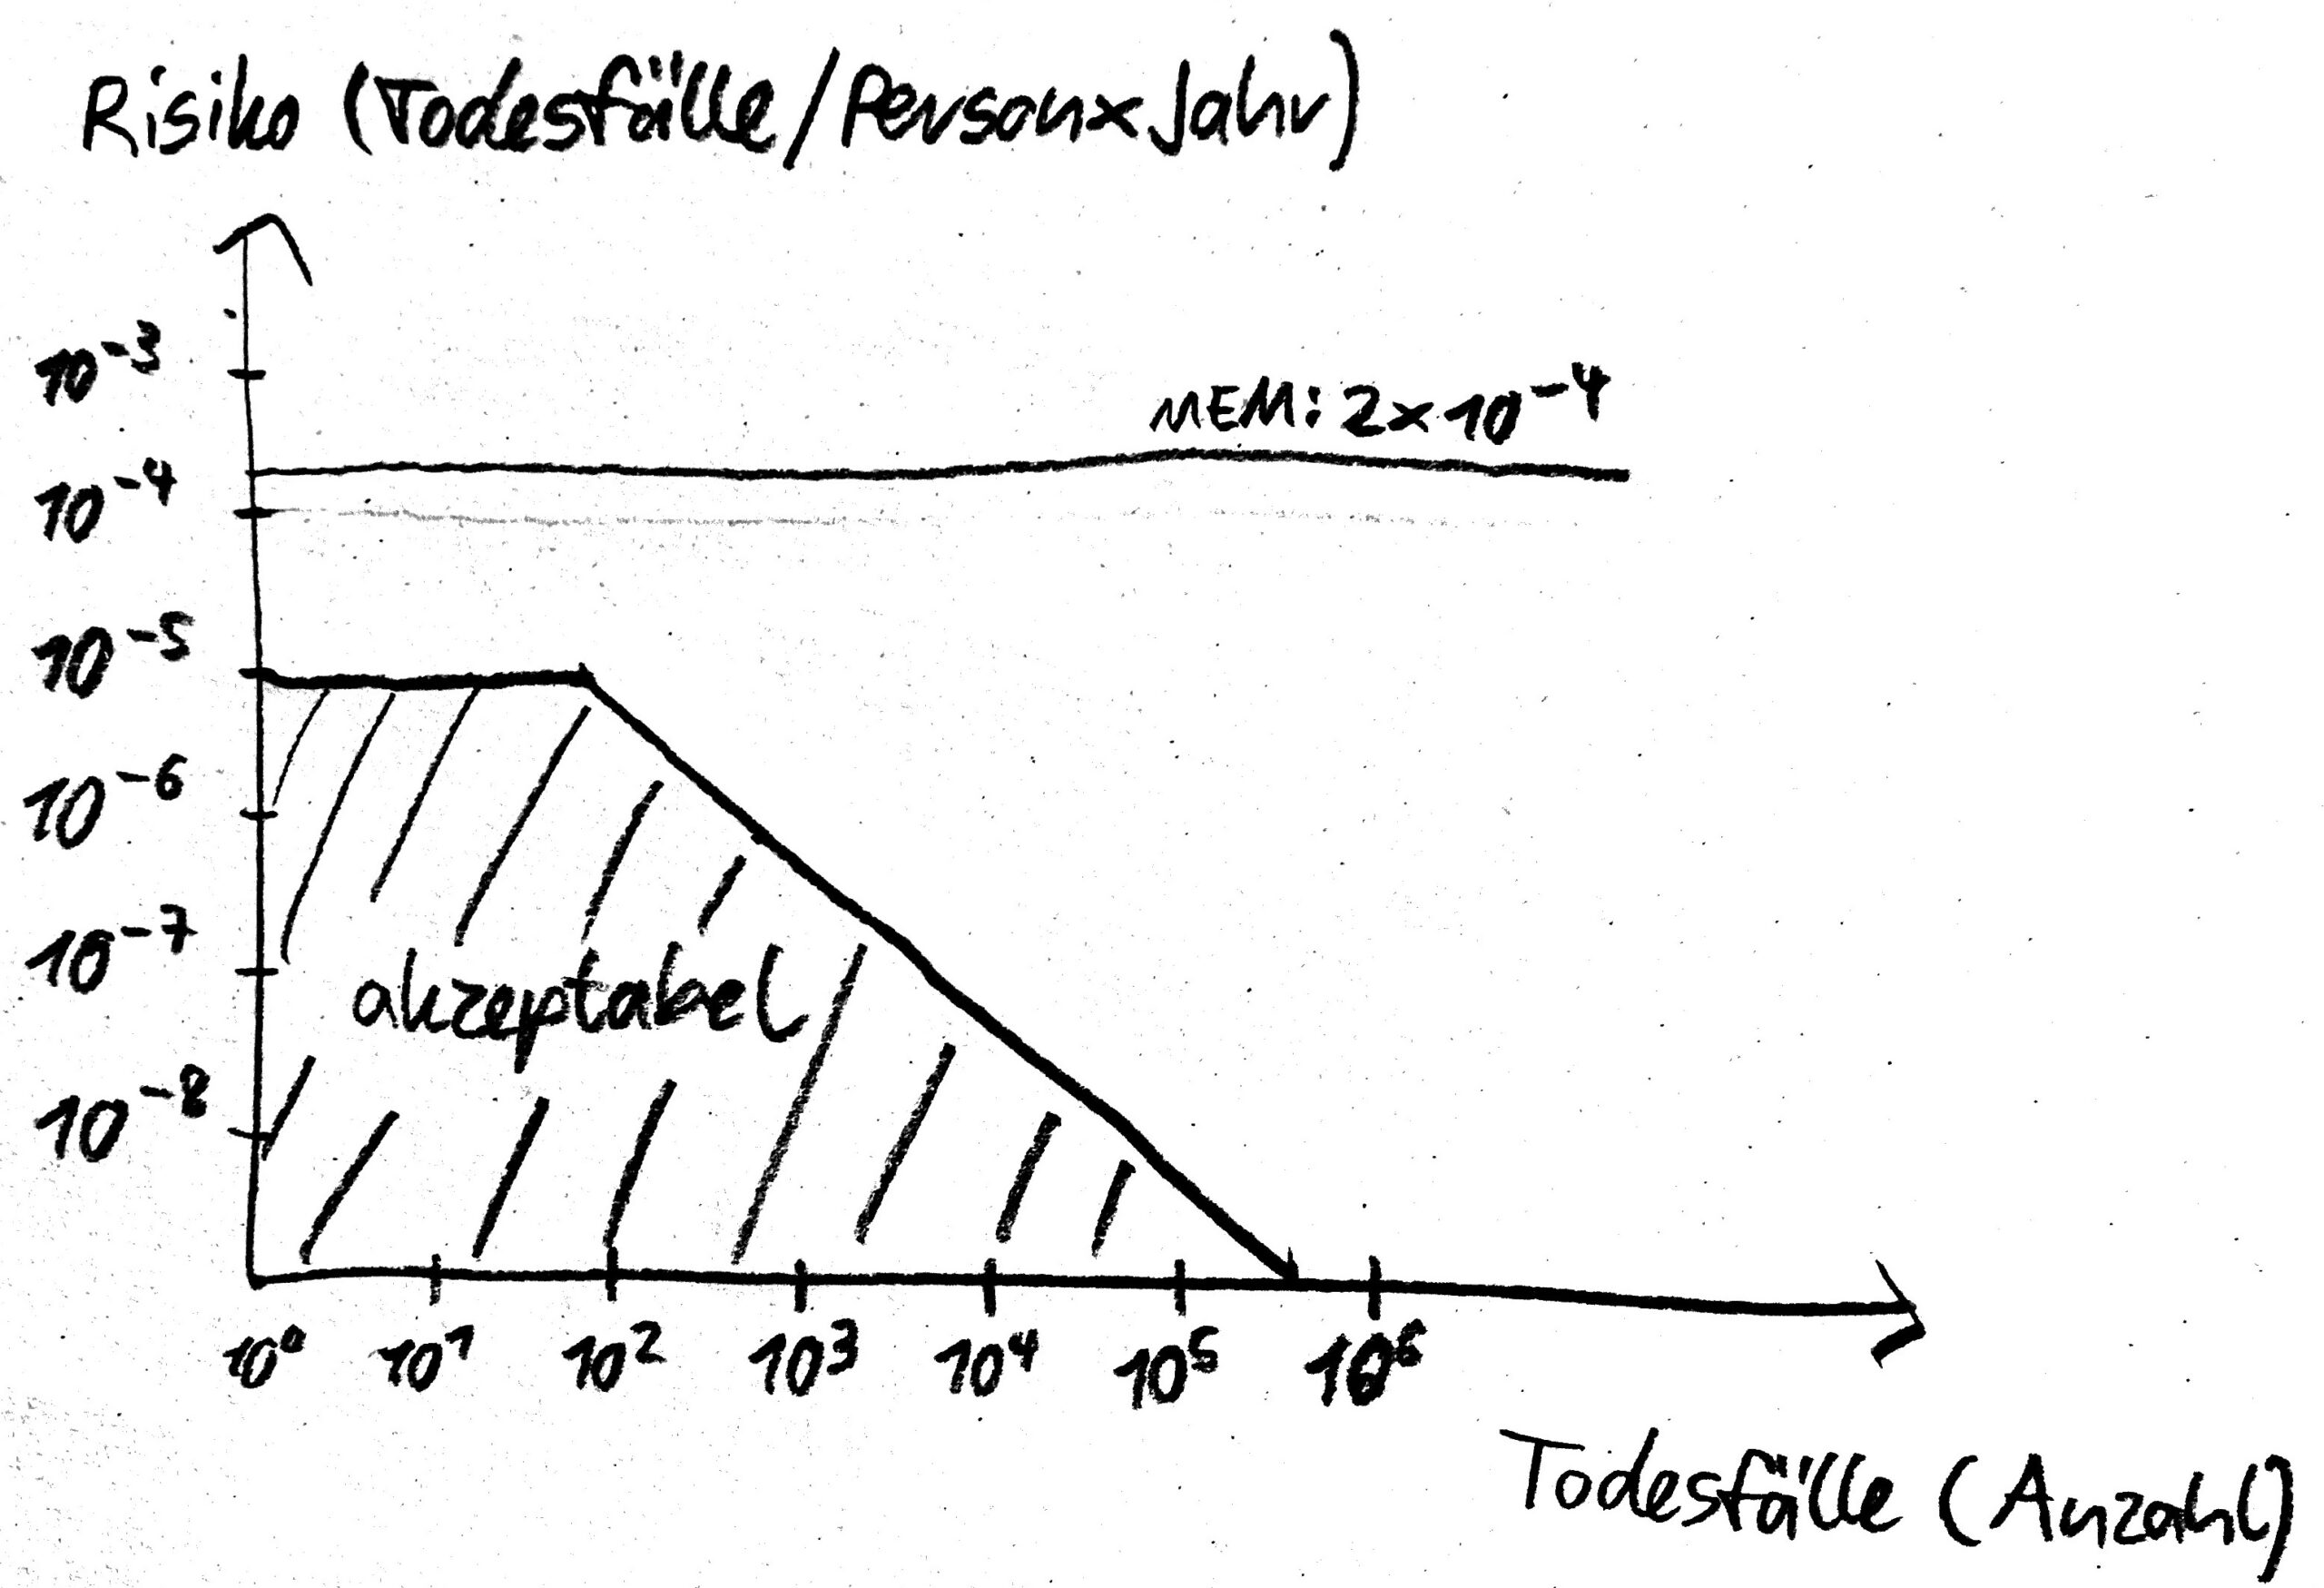 Risiko (Todesfälle/Person×Jahr)
10⁻³
MEM: 2×10⁻⁴
10⁻⁴
10⁻⁵
10⁻⁶
10⁻⁷
akzeptabel
10⁻⁸
10⁰ 10¹ 10² 10³ 10⁴ 10⁵ 10⁶
Todesfälle (Anzahl)